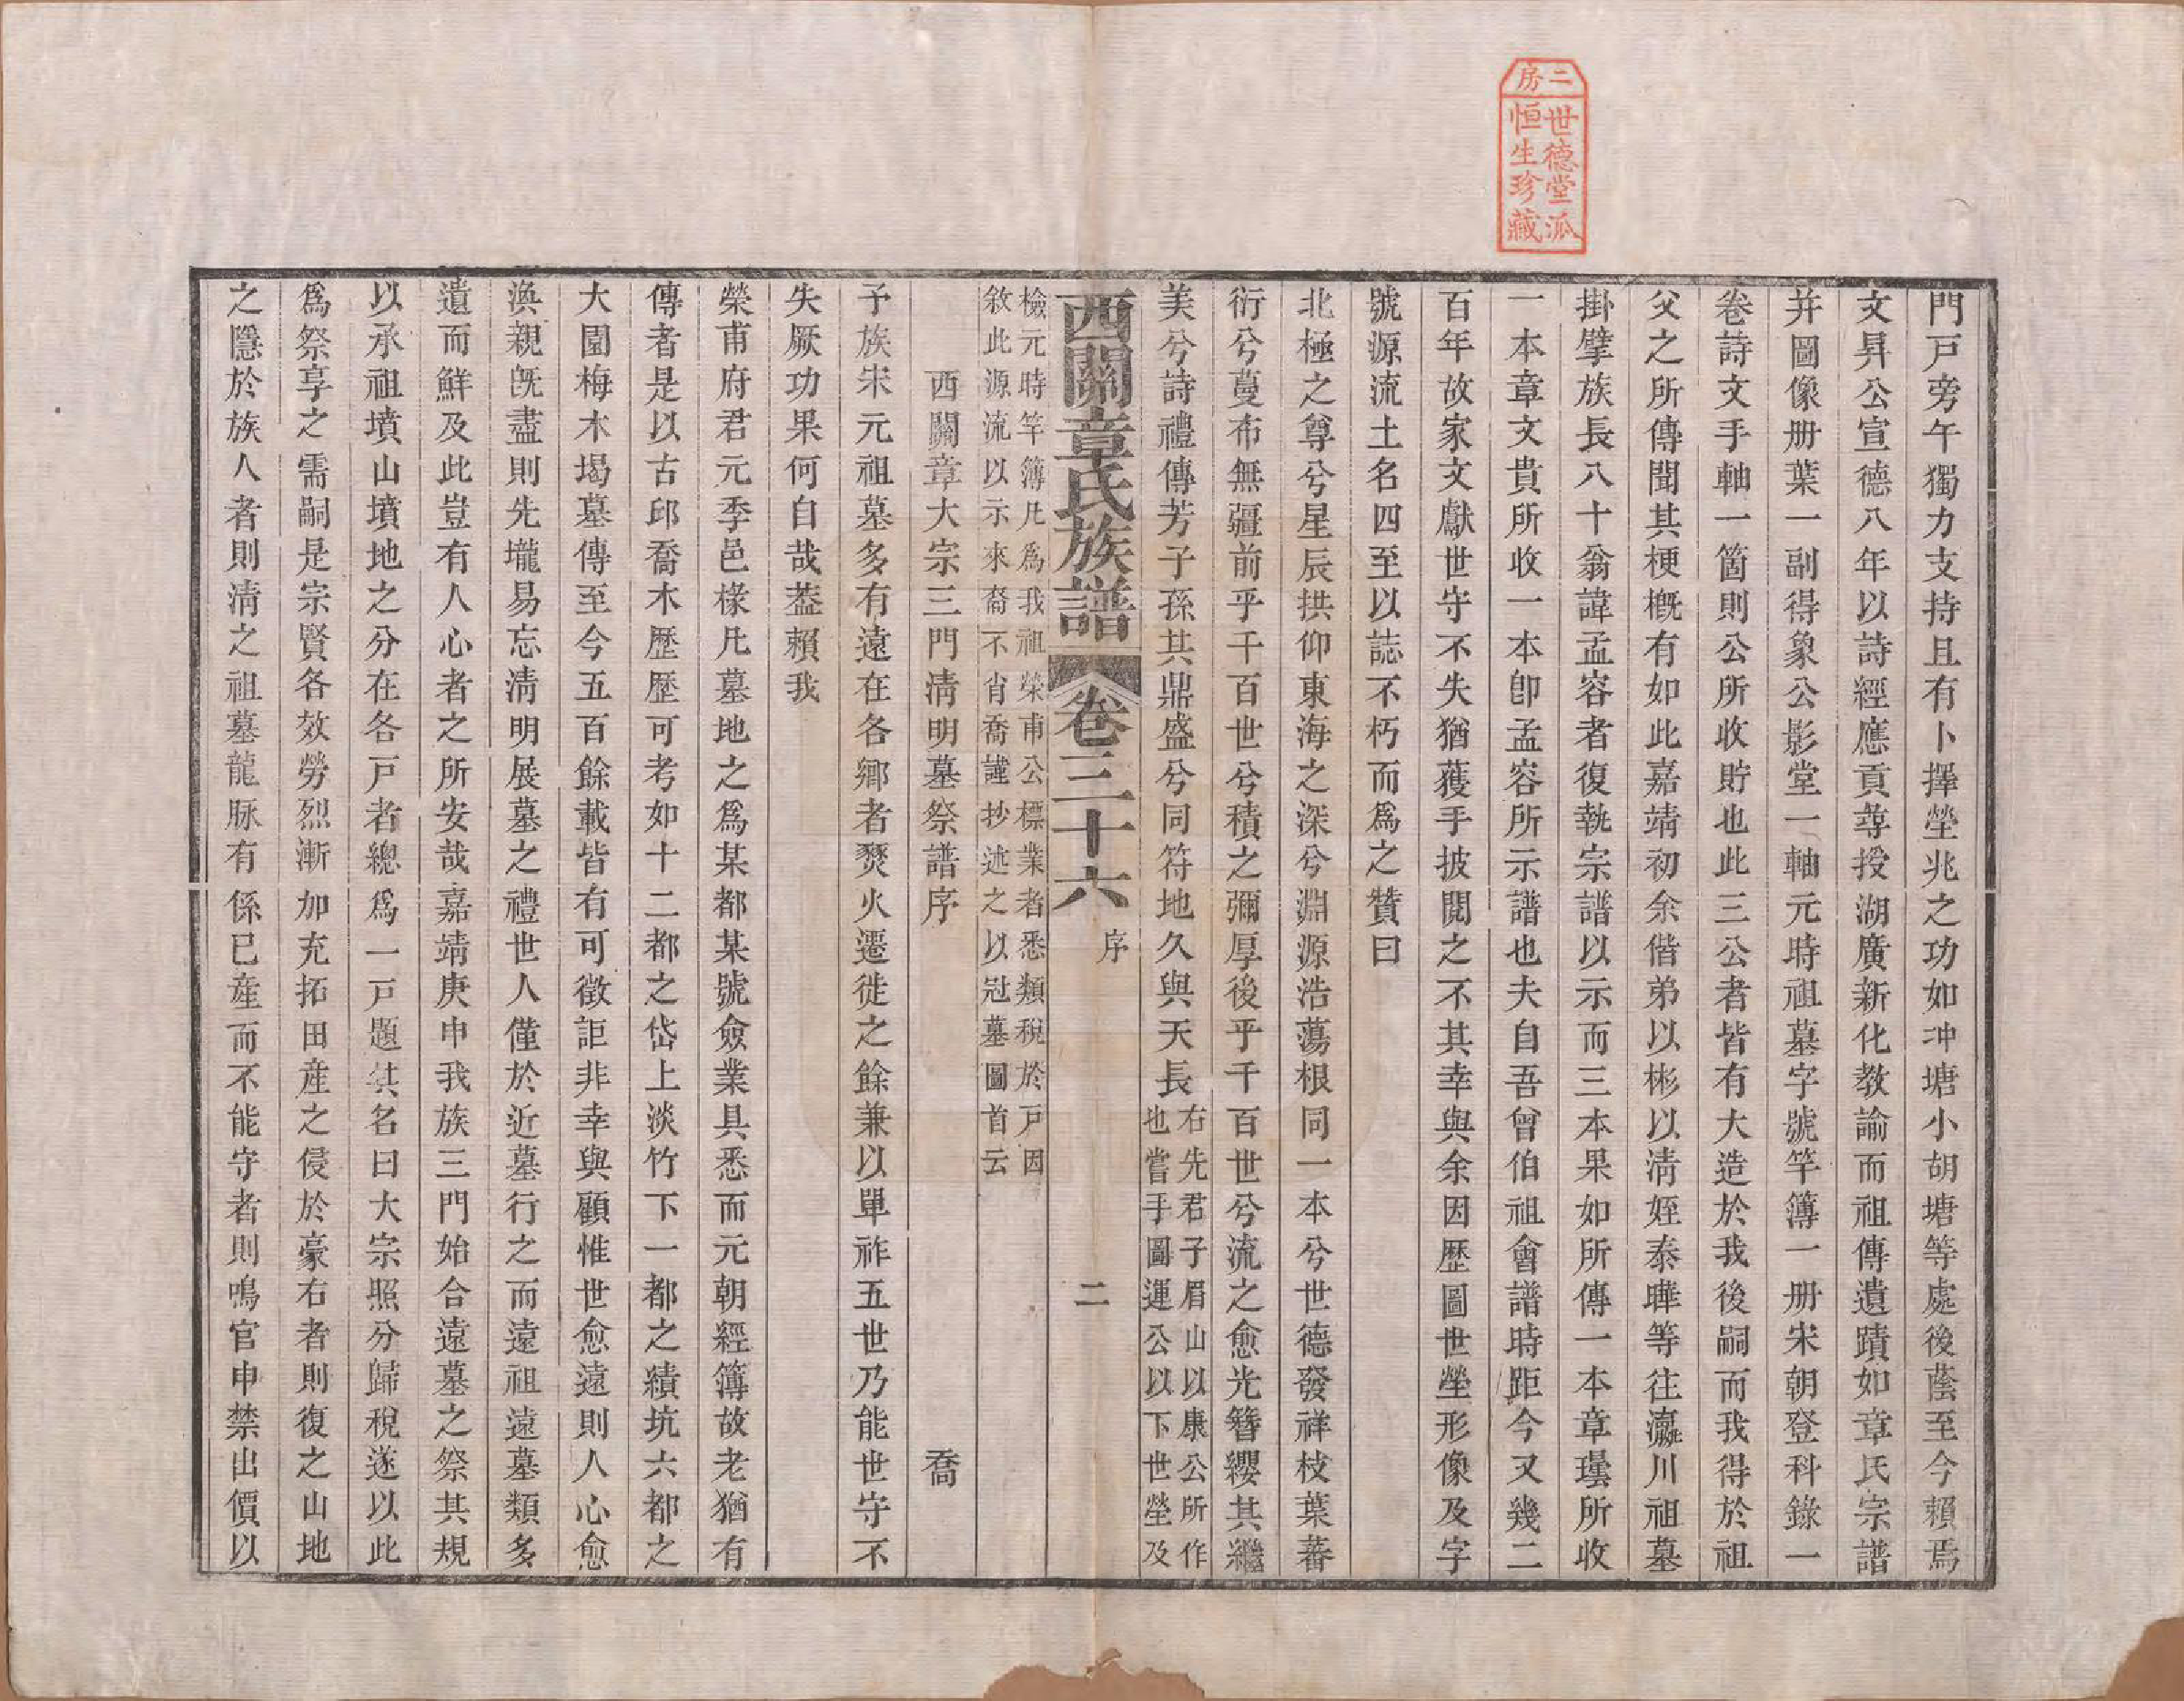 二房
世德堂派
恒生珍藏
門戸旁午獨力支持且有卜擇塋兆之功如冲塘小胡塘等處後蔭至今賴焉
文昇公宣德八年以詩經應貢蕁授湖廣新化教諭而祖傳遺蹟如章氏宗譜
并圖像册葉一副得象公影堂一軸元時祖墓字號竿簿一册宋朝登科錄一
卷詩文手軸一箇則公所收貯也此三公者皆有大造於我後嗣而我得於祖
父之所傳聞其梗槪有如此嘉靖初余偕弟以彬以清姪泰曄等往瀛川祖墓
掛擘族長八十翁諱孟容者復執宗譜以示而三本果如所傳一本章璂所收
一本章文貴所收一本卽孟容所示譜也夫自吾曾伯祖會譜時距今又幾二
百年故家文獻世守不失猶獲手披閱之不其幸與余因歷圖世塋形像及字
號源流土名四至以誌不朽而爲之贊曰
北極之尊兮星辰拱仰東海之深兮淵源浩蕩根同一本兮世德發祥枝葉蕃
衍兮蔓布無疆前乎千百世兮積之彌厚後乎千百世兮流之愈光簪纓其繼
美兮詩禮傳芳子孫其鼎盛兮同符地久與天長右先君子眉山以康公所作
也嘗手圖運公以下世塋及
西關章氏族譜 卷三十六 序 二
檢元時竿簿凡爲我祖榮甫公標業者悉類稅於戸因
敘此源流以示來裔不肖喬謹抄述之以冠墓圖首云
西關章大宗三門淸明墓祭譜序 喬
予族宋元祖墓多有遠在各鄉者燹火遷徙之餘兼以單祚五世乃能世守不
失厥功果何自哉葢賴我
榮甫府君元季邑椽凡墓地之爲某都某號僉業具悉而元朝經簿故老猶有
傳者是以古邱喬木歷歷可考如十二都之岱上淡竹下一都之績坑六都之
大園梅木塢墓傳至今五百餘載皆有可徵詎非幸與顧惟世愈遠則人心愈
渙親旣盡則先壠易忘淸明展墓之禮世人僅於近墓行之而遠祖遠墓類多
遺而鮮及此豈有人心者之所安哉嘉靖庚申我族三門始合遠墓之祭其規
以承祖墳山墳地之分在各戸者總爲一戸題其名曰大宗照分歸稅遂以此
爲祭享之需嗣是宗賢各效勞烈漸加充拓田產之侵於豪右者則復之山地
之隱於族人者則淸之祖墓龍脉有係已產而不能守者則鳴官申禁出價以